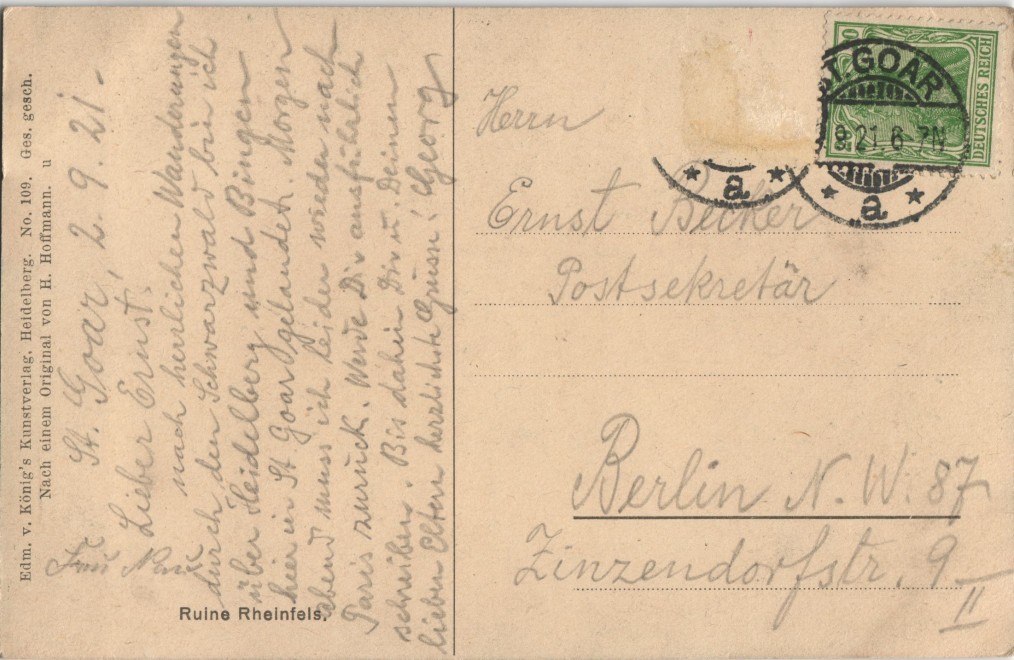 Edm. v. König's Kunstverlag, Heidelberg. No. 109. Ges. gesch.
Nach einem Original von H. Hoffmann. u
St. Goar, 2. 9. 21.
Lieber Ernst!
nach herrlichen Wanderungen
durch den Schwarzwald bin ich
über Heidelberg und Bingen
hier in St Goar gelandet. Morgen
abend muss ich leider wieder nach
Paris zurück. Werde Dir ausführlich
schreiben. Bis dahin Dir u. Deinen
lieben Eltern herzlichste Grüsse! Georg
Ruine Rheinfels.
Herrn
Ernst Becker
Postsekretär
Berlin N. W. 87
Zinzendorfstr. 9
II
DEUTSCHES REICH
ST. GOAR
9.21.6-7N
* a *
* a *